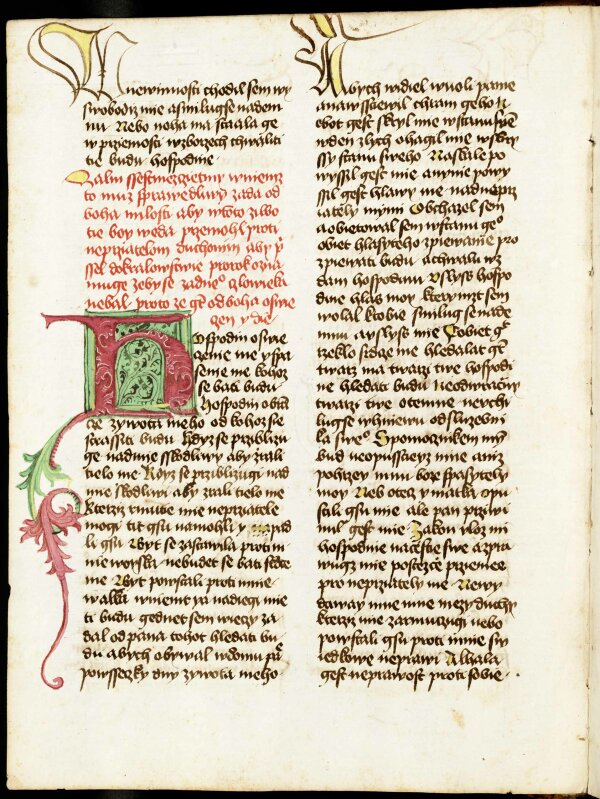 W newinnosti chodil sem wy
swobodiz mie asmilug se nademnu
Nebo noha ma stala ge
w prziemosti w zborzech chwaliti
tie budu hospodine
Zalm ssestmezcietmy w niemz
to muz sprawedliwy zada od
boha milosti aby w tom
boy weda przemohl proti
neprziatelom duchownim aby
ssel do kralowstwie prorok ozna
muge zeby se zadneho czlowieka
nebal proto ze gest od boha oswie
czen y die
Hospodin oswie
czenie me y spa
senie me kohoz
se bati budu
Hospodin obran
cze zywota meho od kohoz sie
strassiti budu Kdyz se prziblizu
ge nad mie sskodliwi aby zrali
tielo me Kdyz se prziblizugi nad
mie skodliwi aby zrali tielo me
kterziz mutie mie neprzatele
mogi tit gsu namohli y padli
gsu Byt se zastawila proti mi
nie woyska nebudet se bati srdce
me Byt powstali proti mnie
walka w niemt ya nadiegi mie
ti budu gednet sem wiecy za
dal od pana tohot hledati bu
du abych obywal w domu
po wsseczky dny zywota meho
Abych widiel wuoli panie
a nawsstiewil chram geho N
ebot gest skryl mie w stanu swem
w den zlych ohagil mie w skry
ssy stanu sweho Na skale po
wyssil gest mie a nynie powy
ssil gest hlawy me nad neprz
iately mymi Obchazel sem
a obietowal sem w stanu geho
obiet hlasyteho zpiewanie pro
zpiewati budu a chwalu wz
dam hospodinu Uslyss hospo
dine hlas moy kterymzt sem
wolal k tobie smilug se nade
mnu a uslyss mie Tobiet gest
rzeklo srdce me hledalat gest
twarz ma twarzi twe hospodi
ne hledati budu Neodwraczuy
twarzi twe ote mne nerchy
lug se w hniewu od sluzebni
ka sweho Spomocznikem my
bud neopusstiey mne aniz
pohrzey mnu boze spasytely
moy Neb otecz y matka opu
stili gsu mie ale pan przıwi
nul gest mie Zakon uloz mi
hospodine na cestie swe a zpra
wugz mie po stezce przieme
pro neprziately me Neway
daway mne w mezy duchy
kterzi mie zarmuczugi nebo
powstali gsu proti mnie swi
edkowe neprawi A lhala
gest neprawost proti sobie